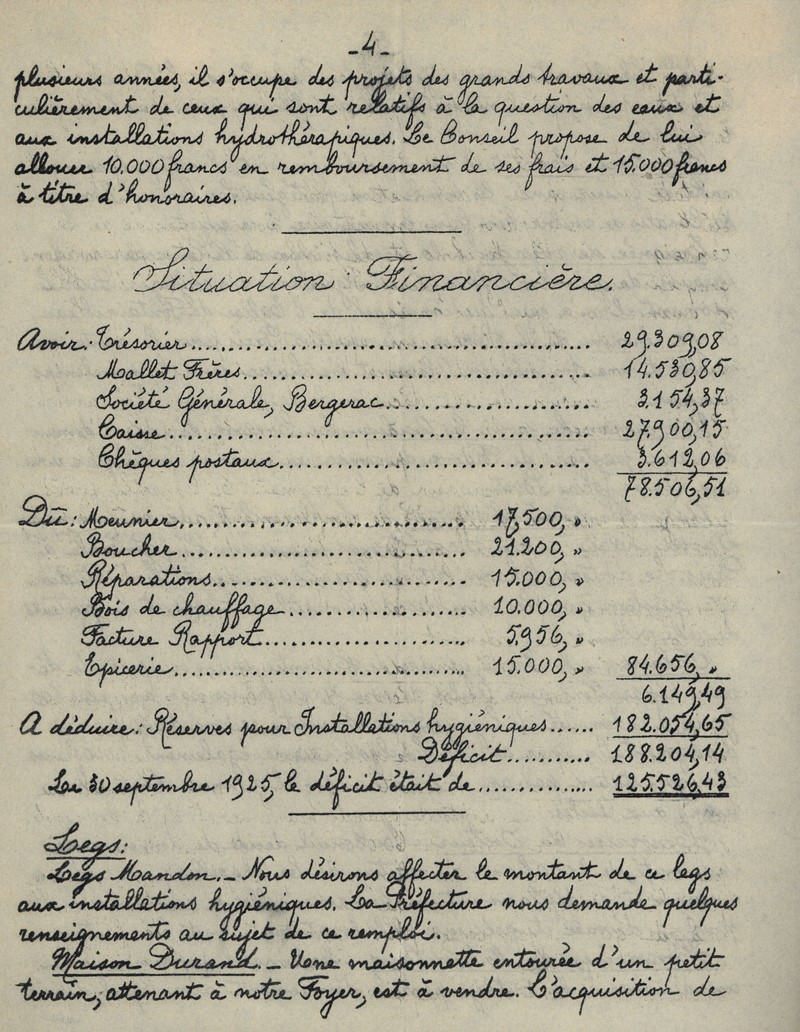 -4-
plusieurs années, il s'occupe des projets des grands travaux et parti-
culièrement de ceux qui sont relatifs à la question des eaux et
aux installations hydrothérapiques. Le Conseil propose de lui
allouer 10.000 francs en remboursement de ses frais et 15.000 francs
à titre d'honoraires.
Situation Financière.
Avoir: Trésorier........ 29.309,08
Mallet Frères........ 14.530,85
Société Générale, Bergerac........ 3.154,37
Caisse........ 27.900,15
Chèques postaux........ 3.612,06
78.506,51
Dû: Meunier........ 17,500, »
Boucher........ 21.200, »
Réparations........ 15.000, »
Bois de chauffage........ 10.000, »
Facture Rapport........ 5.956, »
Epicerie........ 15.000, » 84.656, »
6.149,49
A déduire: Réserves pour Installations hygiéniques...... 182.054,65
Déficit.......... 188.204,14
Le 30 septembre 1925, le déficit était de.............. 125.526,43
Legs:
Legs Mandon._ Nous désirons affecter le montant de ce legs
aux installations hygiéniques. La Préfecture nous demande quelques
renseignements au sujet de ce remploi.
Maison Durand._ Une maisonnette entourée d'un petit
terrain, attenant à notre Foyer, est à vendre. L'acquisition de